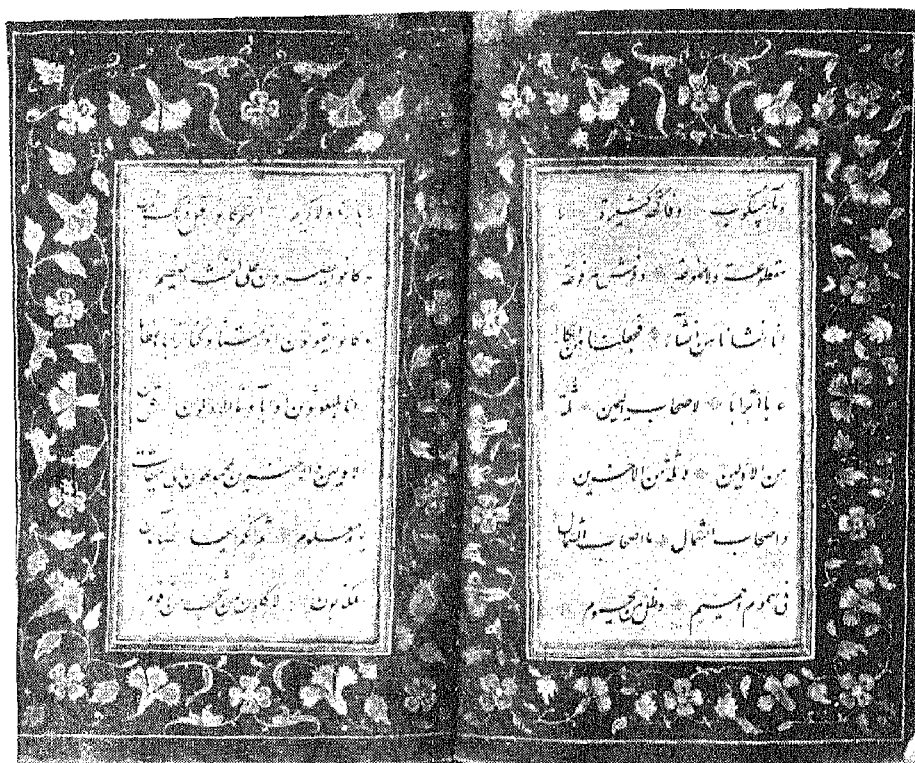 وماء مسكوب وفاكهة كثيرة لا
مقطوعة ولا ممنوعة وفرش مرفوعة
انا انشاناهن انشآء فجعلناهن ابكا
را عربا اترابا لاصحاب اليمين ثلة
من الاولين وثلة من الاخرين
واصحاب الشمال ما اصحاب الشمال
فى سموم وحميم وظل من يحموم
لا بارد ولا كريم انهم كانوا قبل ذلك
وكانوا يصرون على الحنث العظيم
وكانوا يقولون ائذا متنا وكنا ترابا وعظاما
ءانا لمبعوثون اوآباؤنا الاولون قل ان
الاولين والاخرين لمجموعون الى ميقات
يوم معلوم ثم انكم ايها الضآلون
المكذبون لاكلون من شجر من زقوم